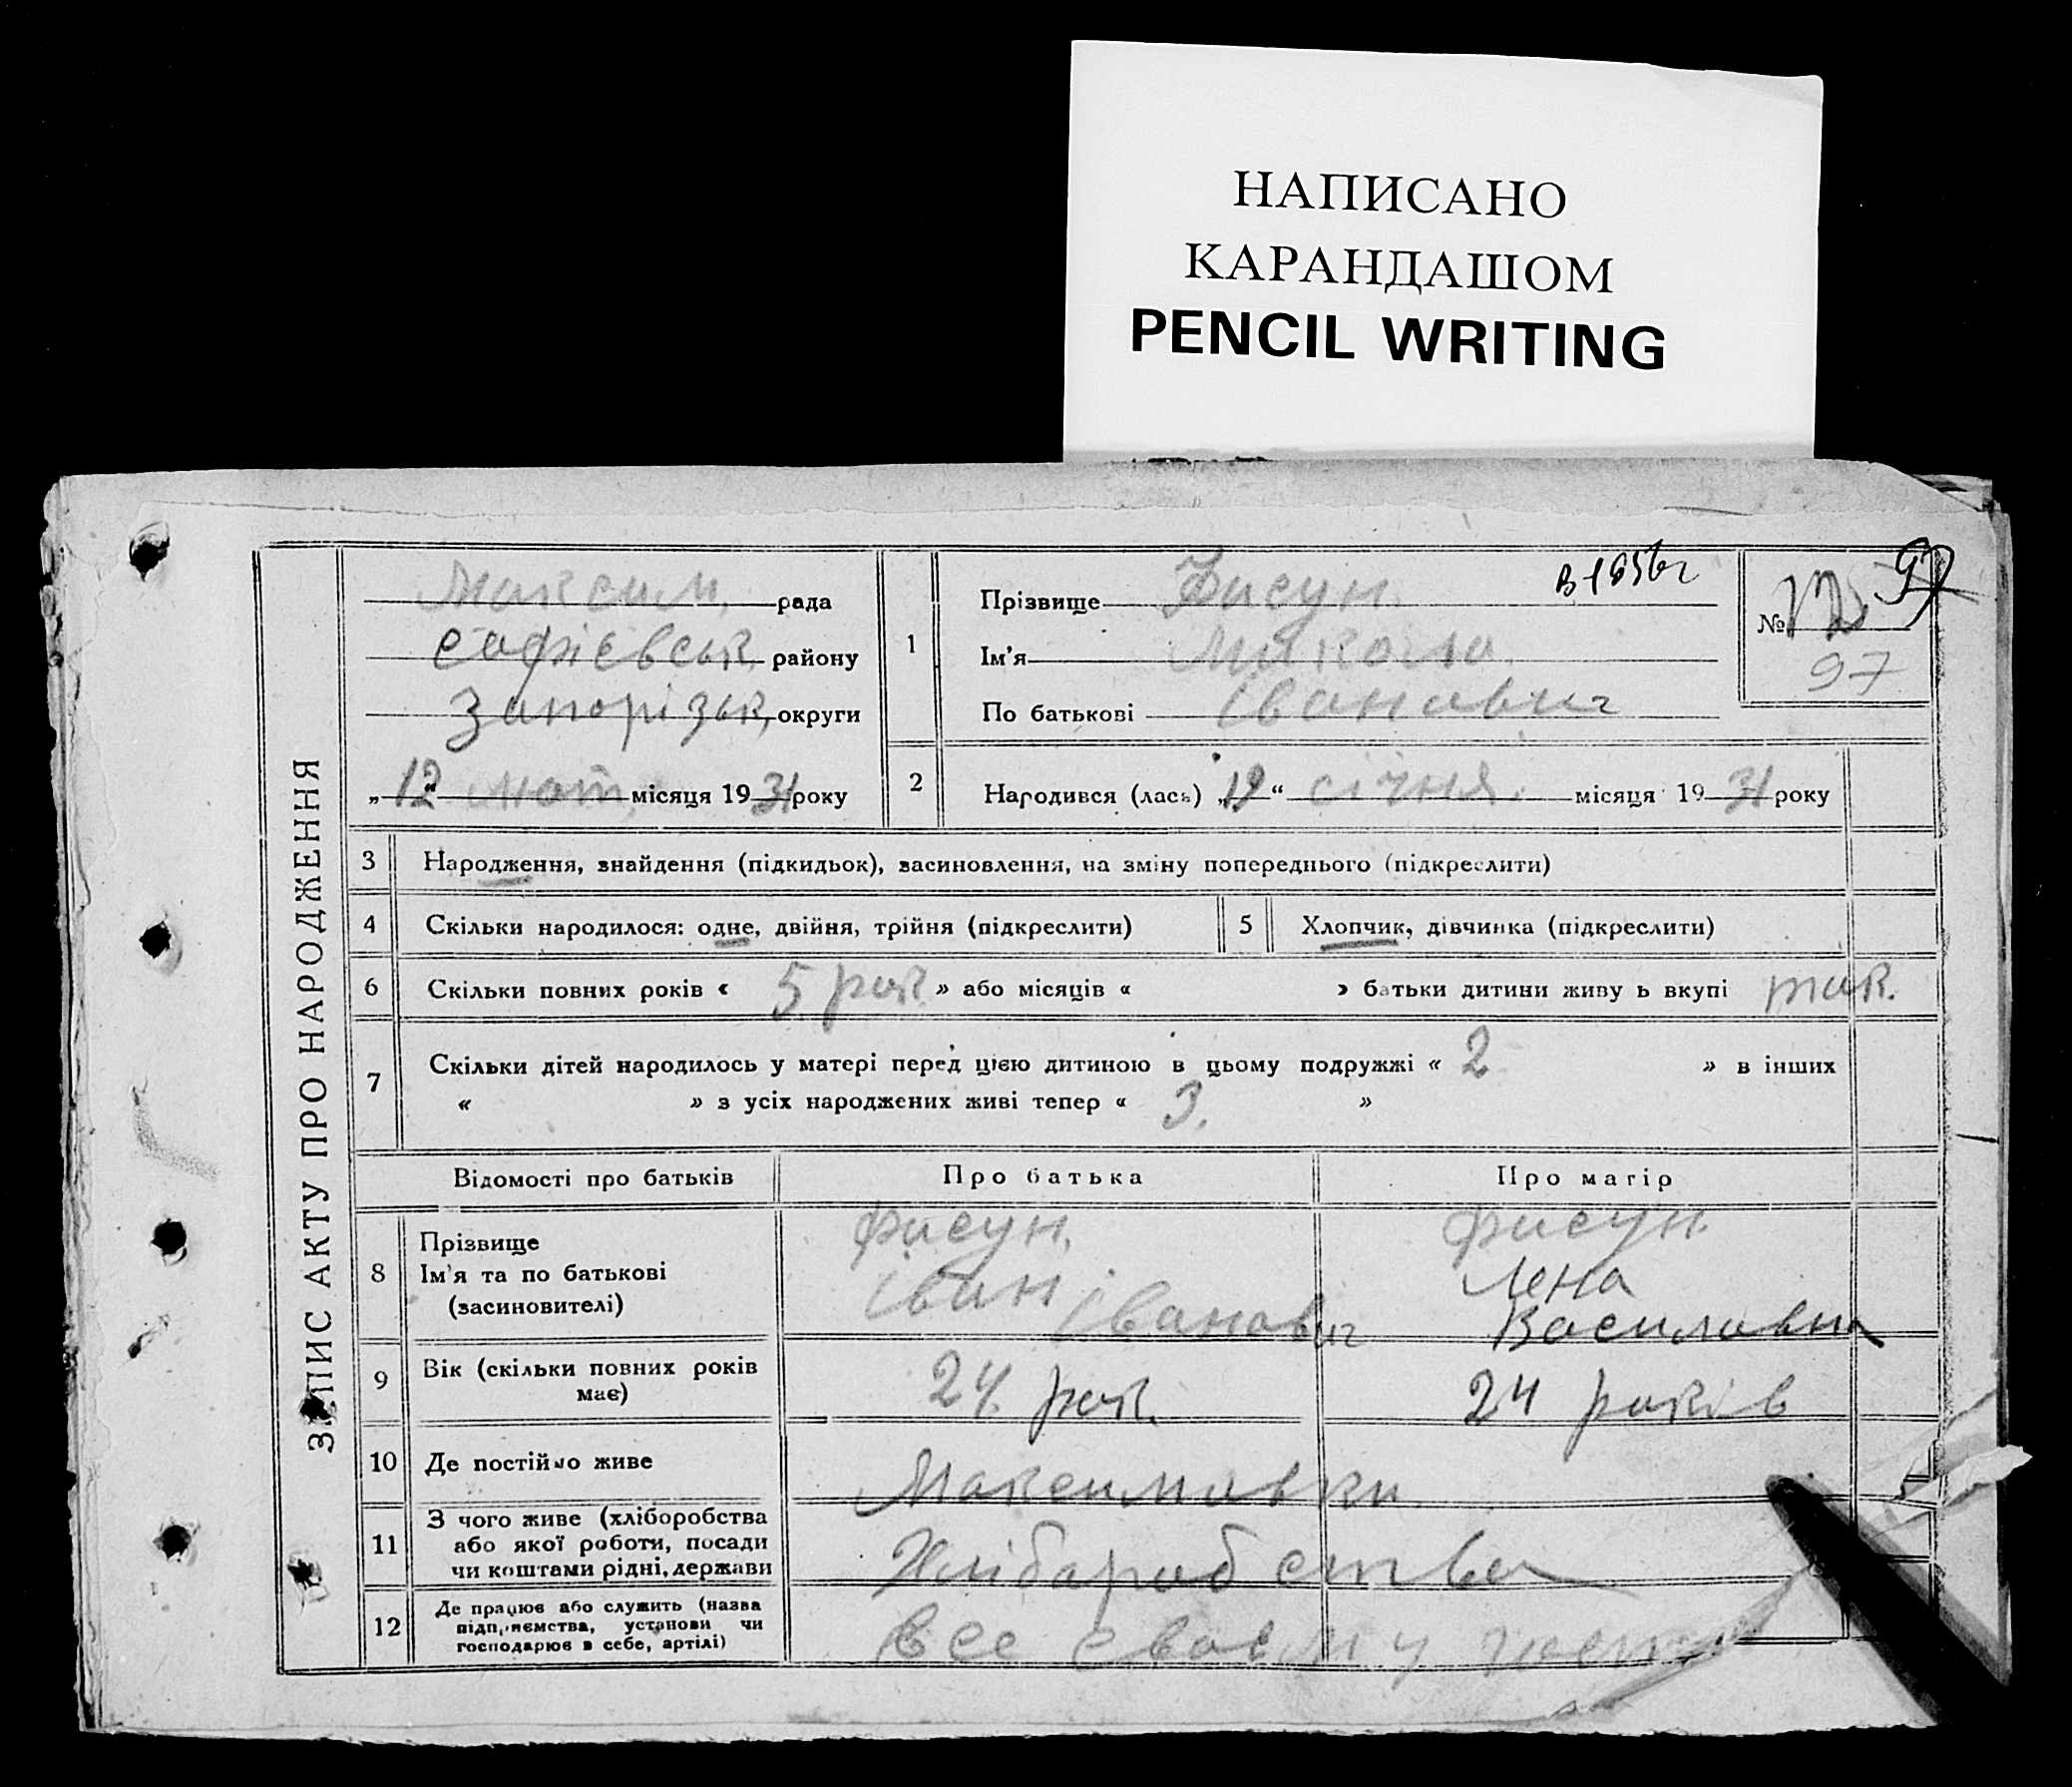 НАПИСАНО
КАРАНДАШОМ
PENCIL WRITING
ЗАПИС АКТУ ПРО НАРОДЖЕННЯ
Максим. рада
Софієвськ. району
Запорізьк, округи
„12“ лют. місяця 1931 року
1
Прізвище Фисун
Ім'я Микола
По батькові Іванович
№ 97
97
2 Народився (лась) „19“ січня. місяця 1931 року
3 Народження, знайдення (підкидьок), засиновлення, на зміну попереднього (підкреслити)
4 Скільки народилося: одне, двійня, трійня (підкреслити) 5 Хлопчик, дівчинка (підкреслити)
6 Скільки повних років « 5 рок. » або місяців « » батьки дитини живу ь вкупі так.
7 Скільки дітей народилось у матері перед цією дитиною в цьому подружжі « 2 » в інших
« » з усіх народжених живі тепер « 3. »
Відомості про батьків Про батька Про матір
8 Прізвище Фисун. Фисун.
Ім'я та по батькові Іван Лена
(засиновителі) Іванович Василовна
9 Вік (скільки повних років має) 24 рок. 24 років
10 Де постійно живе Максимовки
11 З чого живе (хліборобства
або якої роботи, посади
чи коштами рідні, держави Хлібаробства
12 Де працює або служить (назва
підприємства, установи чи
господарює в себе, артілі) все своєму